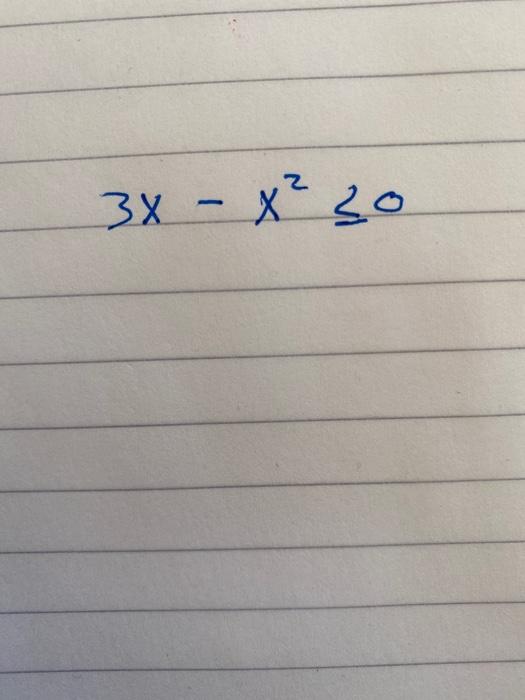 3x - x² ≤ 0